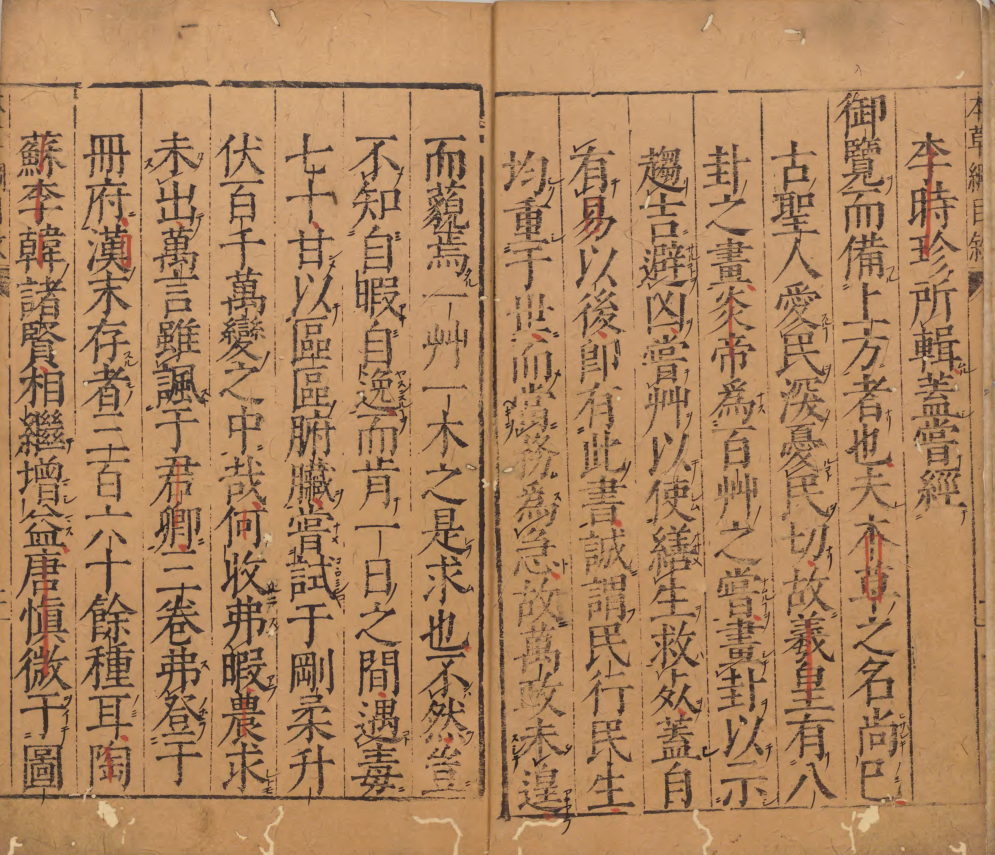 本草綱目敘
李時珍所輯蓋嘗經
御覽而備上方者也夫本草之名尚已
古聖人愛民深憂民切故羲皇有八
卦之畫炎帝爲百艸之嘗畫卦以示
趨吉避凶嘗艸以使繕生救夭蓋自
有易以後卽有此書誠謂民行民生
均重于世而當務爲急故萬政未遑
而藐焉一艸一木之是求也不然豈
不知自暇自逸而肯一日之間遇毒
七十甘以區區腑臟嘗試于剛柔升
伏百千萬變之中哉何收弗暇農求
未出萬言雖諷于君卿二卷弗登于
冊府漢末存者三百六十餘種耳陶
蘇李韓諸賢相繼增益唐愼微于圖